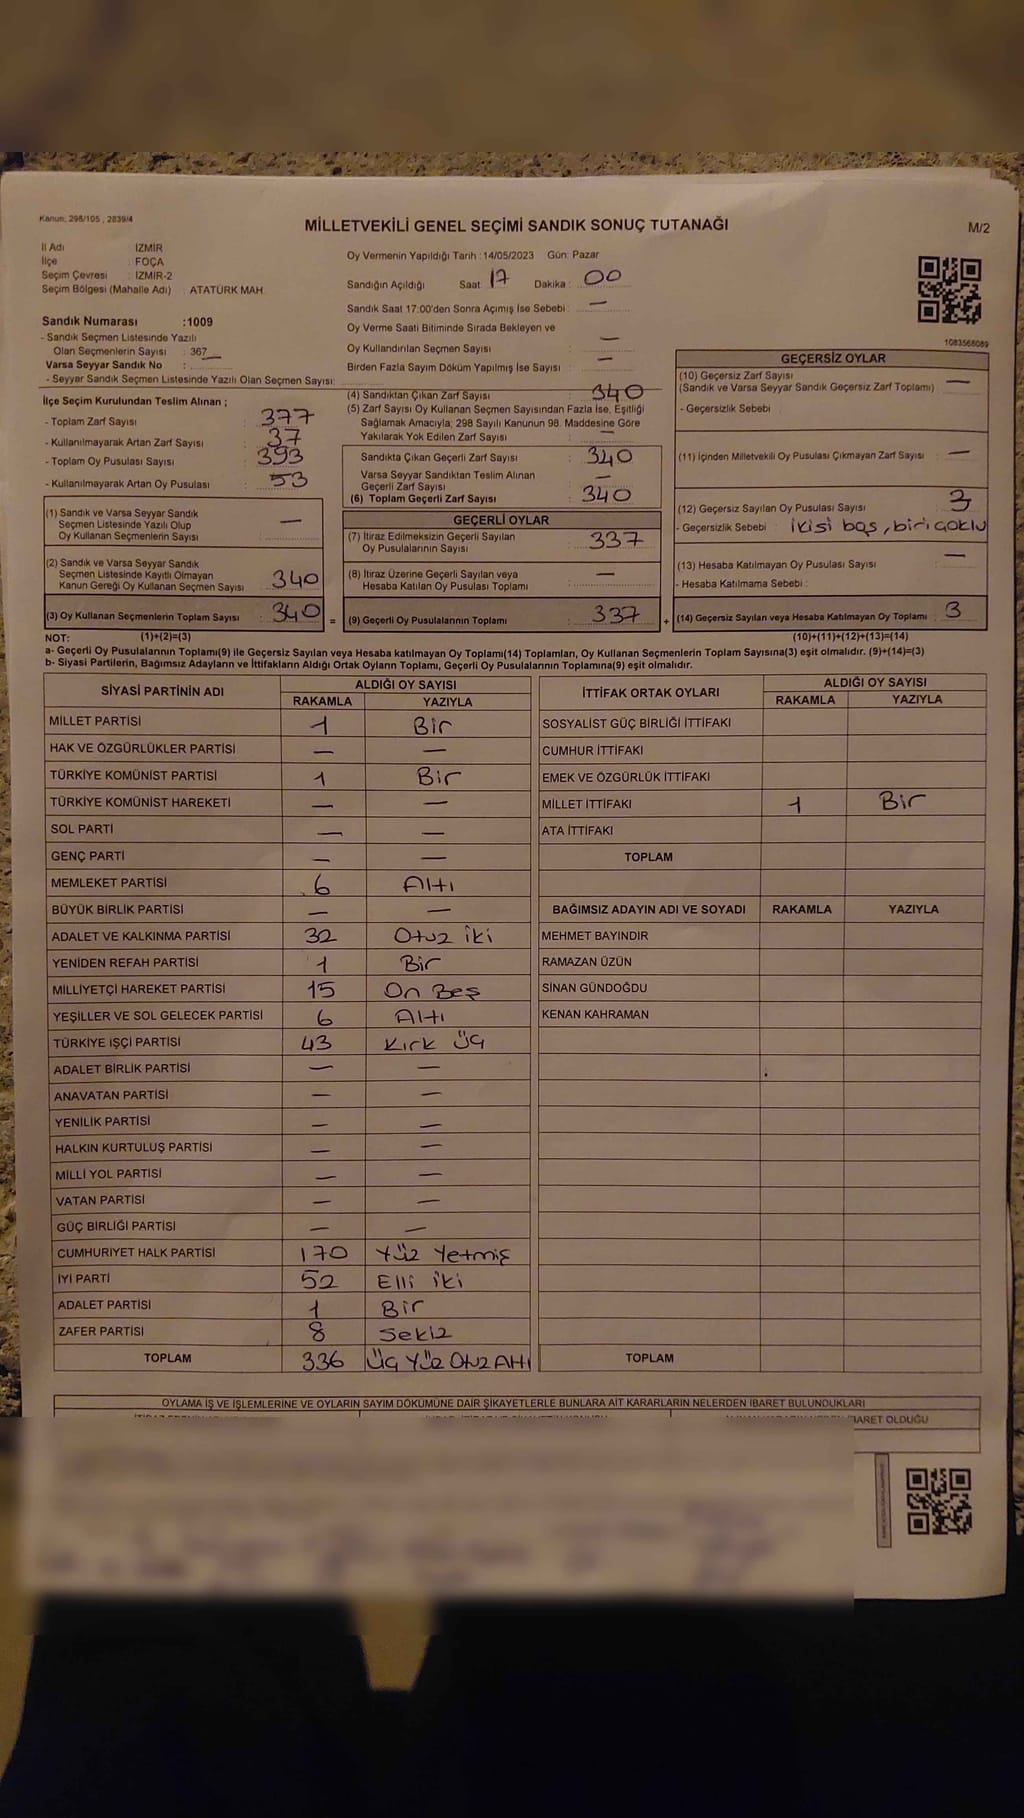 Kanun; 298/105 , 2839/4
MİLLETVEKİLİ GENEL SEÇİMİ SANDIK SONUÇ TUTANAĞI
M/2
İl Adı : İZMİR
İlçe : FOÇA
Seçim Çevresi : İZMİR-2
Seçim Bölgesi (Mahalle Adı) : ATATÜRK MAH.
Sandık Numarası :1009
- Sandık Seçmen Listesinde Yazılı
Olan Seçmenlerin Sayısı : 367
Varsa Seyyar Sandık No :
- Seyyar Sandık Seçmen Listesinde Yazılı Olan Seçmen Sayısı:
Oy Vermenin Yapıldığı Tarih :14/05/2023 Gün: Pazar
Sandığın Açıldığı Saat : 17 Dakika : 00
Sandık Saat 17:00'den Sonra Açımış İse Sebebi : —
Oy Verme Saati Bitiminde Sırada Bekleyen ve
Oy Kullandırılan Seçmen Sayısı : —
Birden Fazla Sayım Döküm Yapılmış İse Sayısı : —
1083568089
İlçe Seçim Kurulundan Teslim Alınan ;
- Toplam Zarf Sayısı : 377
- Kullanılmayarak Artan Zarf Sayısı : 37
- Toplam Oy Pusulası Sayısı : 393
- Kullanılmayarak Artan Oy Pusulası : 53
(1) Sandık ve Varsa Seyyar Sandık
Seçmen Listesinde Yazılı Olup
Oy Kullanan Seçmenlerin Sayısı : —
(2) Sandık ve Varsa Seyyar Sandık
Seçmen Listesinde Kayıtlı Olmayan
Kanun Gereği Oy Kullanan Seçmen Sayısı : 340
(3) Oy Kullanan Seçmenlerin Toplam Sayısı : 340 =
(4) Sandıktan Çıkan Zarf Sayısı : 340
(5) Zarf Sayısı Oy Kullanan Seçmen Sayısından Fazla İse, Eşitliği
Sağlamak Amacıyla; 298 Sayılı Kanunun 98. Maddesine Göre
Yakılarak Yok Edilen Zarf Sayısı : —
Sandıkta Çıkan Geçerli Zarf Sayısı : 340
Varsa Seyyar Sandıktan Teslim Alınan
Geçerli Zarf Sayısı : —
(6) Toplam Geçerli Zarf Sayısı : 340
GEÇERLİ OYLAR
(7) İtiraz Edilmeksizin Geçerli Sayılan
Oy Pusulalarının Sayısı : 337
(8) İtiraz Üzerine Geçerli Sayılan veya
Hesaba Katılan Oy Pusulaları Toplamı : —
(9) Geçerli Oy Pusulalarının Toplamı : 337 +
GEÇERSİZ OYLAR
(10) Geçersiz Zarf Sayısı : —
(Sandık ve Varsa Seyyar Sandık Geçersiz Zarf Toplamı)
- Geçersizlik Sebebi :
(11) İçinden Milletvekili Oy Pusulası Çıkmayan Zarf Sayısı : —
(12) Geçersiz Sayılan Oy Pusulası Sayısı : 3
- Geçersizlik Sebebi : ikisi boş, biri çoklu
(13) Hesaba Katılmayan Oy Pusulası Sayısı : —
- Hesaba Katılmama Sebebi :
(14) Geçersiz Sayılan veya Hesaba Katılmayan Oy Toplamı : 3
NOT: (1)+(2)=(3) (10)+(11)+(12)+(13)=(14)
a- Geçerli Oy Pusulalarının Toplamı(9) ile Geçersiz Sayılan veya Hesaba katılmayan Oy Toplamı(14) Toplamları, Oy Kullanan Seçmenlerin Toplam Sayısına(3) eşit olmalıdır. (9)+(14)=(3)
b- Siyasi Partilerin, Bağımsız Adayların ve İttifakların Aldığı Ortak Oyların Toplamı, Geçerli Oy Pusulalarının Toplamına(9) eşit olmalıdır.
SİYASİ PARTİNİN ADI ALDIĞI OY SAYISI
RAKAMLA YAZIYLA
MİLLET PARTİSİ 1 Bir
HAK VE ÖZGÜRLÜKLER PARTİSİ — —
TÜRKİYE KOMÜNİST PARTİSİ 1 Bir
TÜRKİYE KOMÜNİST HAREKETİ — —
SOL PARTİ — —
GENÇ PARTİ — —
MEMLEKET PARTİSİ 6 Altı
BÜYÜK BİRLİK PARTİSİ — —
ADALET VE KALKINMA PARTİSİ 32 Otuz iki
YENİDEN REFAH PARTİSİ 1 Bir
MİLLİYETÇİ HAREKET PARTİSİ 15 On Beş
YEŞİLLER VE SOL GELECEK PARTİSİ 6 Altı
TÜRKİYE İŞÇİ PARTİSİ 43 Kırk Üç
ADALET BİRLİK PARTİSİ — —
ANAVATAN PARTİSİ — —
YENİLİK PARTİSİ — —
HALKIN KURTULUŞ PARTİSİ — —
MİLLİ YOL PARTİSİ — —
VATAN PARTİSİ — —
GÜÇ BİRLİĞİ PARTİSİ — —
CUMHURİYET HALK PARTİSİ 170 Yüz Yetmiş
İYİ PARTİ 52 Elli iki
ADALET PARTİSİ 1 Bir
ZAFER PARTİSİ 8 Sekiz
TOPLAM 336 Üç Yüz Otuz Altı
İTTİFAK ORTAK OYLARI ALDIĞI OY SAYISI
RAKAMLA YAZIYLA
SOSYALİST GÜÇ BİRLİĞİ İTTİFAKI
CUMHUR İTTİFAKI
EMEK VE ÖZGÜRLÜK İTTİFAKI
MİLLET İTTİFAKI 1 Bir
ATA İTTİFAKI
TOPLAM
BAĞIMSIZ ADAYIN ADI VE SOYADI RAKAMLA YAZIYLA
MEHMET BAYINDIR
RAMAZAN ÜZÜN
SİNAN GÜNDOĞDU
KENAN KAHRAMAN
TOPLAM
OYLAMA İŞ VE İŞLEMLERİNE VE OYLARIN SAYIM DÖKÜMÜNE DAİR ŞİKAYETLERLE BUNLARA AİT KARARLARIN NELERDEN İBARET BULUNDUKLARI
OLDUĞU